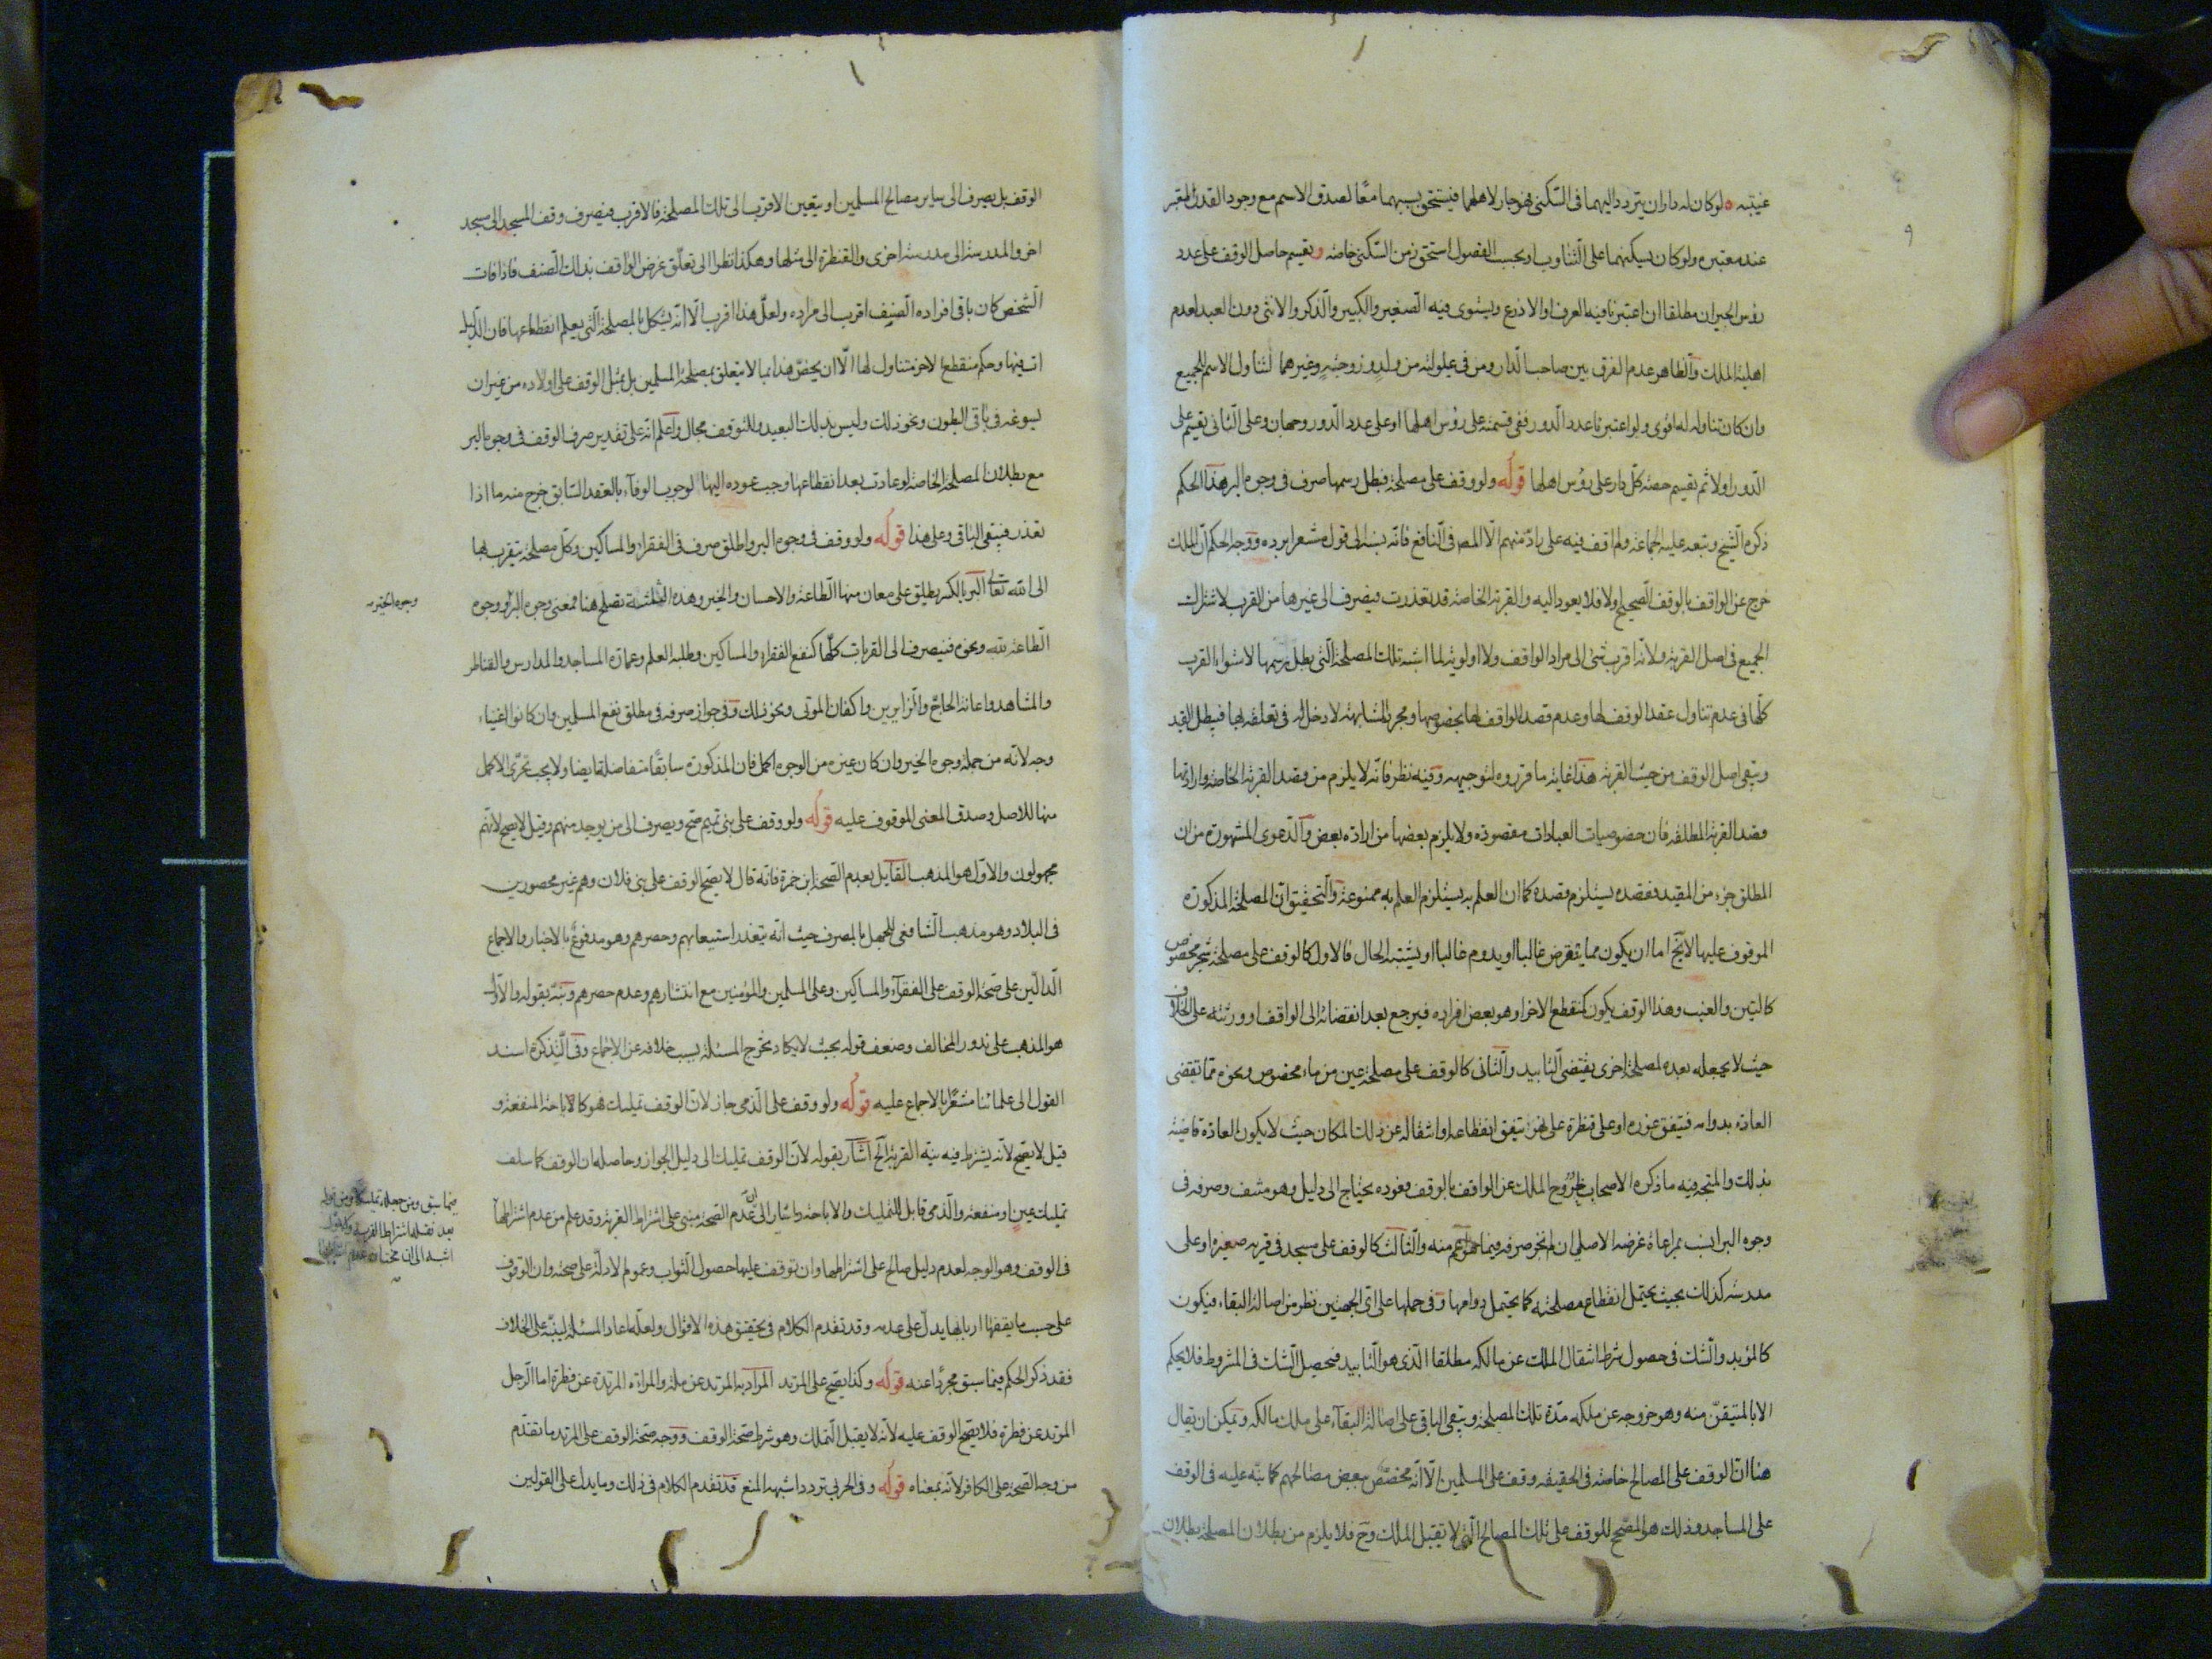 غيبته ولو كان له داران يتردد اليهما في السكنى فهو جار لاهلهما فيستحق بسببهما معًا لصدق الاسم مع وجود القدر المعتبر
عند معتبره ولو كان يسكنهما على التناوب او بحسب الفصول استحق زمن السكنى خاصة ويقسم حاصل الوقف على عدد
رؤس الجيران مطلقا ان اعتبرنا فيه العرف او الاذرع ويستوى فيه الصغير والكبير والذكر والانثى دون العبد لعدم
اهلية الملك والظاهر عدم الفرق بين صاحب الدار ومن في عيلولته من ولد وزوجة وغيرهما لتناول الاسم للجميع
وان كان تناوله له اقوى ولو اعتبرنا عدد الدور ففي قسمته على رؤس اهلها او على عدد الدور وجهان وعلى الثاني يقسم على
الدور اولا ثم تقسيم حصة كل دار على رؤس اهلها قوله ولو وقف على مصلحة فبطل رسمها صرف في وجوه البر هذا الحكم
ذكره الشيخ وتبعه عليه الجماعة ولم اقف فيه على رادّ منهم الا المصر في النافع فانه نسبه الى قول مشعرا برده ووجه الحكم ان الملك
خرج عن الواقف بالوقف الصحيح اولا فلا يعود اليه والقربة الخاصة قد تعذرت فيصرف الى غيرها من القرب لاشتراك
الجميع في اصل القربة ولانه اقرب شئ الى مراد الواقف ولا اولوية لما اشبه تلك المصلحة التي بطل رسمها لاستواء القرب
كلها في عدم تناول عقد الوقف لها وعدم قصد الواقف لها بخصوصها ومجرد المشابهة لا دخل له في تعلقه بها فيبطل القيد
ويبقى اصل الوقف من حيث القربة هذا غاية ما قرروه لتوجيهه وفيه نظر فانه لا يلزم من قصد القربة الخاصة وارادتها
قصد القربة المطلقة فان خصوصيات العبادات مقصودة ولا يلزم بعضها من ارادة بعض والدعوى المشهورة من ان
المطلق جزء من المقيد فقصده يستلزم قصده كما ان العلم به يستلزم العلم به ممنوعة والتحقيق ان المصلحة المذكورة
الموقوف عليها لا يخ اما ان يكون مما ينقرض غالبا او يدوم غالبا او يشتبه الحال فالاول كالوقف على مصلحة شجر مخصوص
كالتين والعنب وهذا الوقف يكون كمنقطع الاخر او هو بعض افراده فيرجع بعد انقضائه الى الواقف او ورثته على الخلاف
حيث لا يجعله بعده لمصلحة اخرى يقتضى التابيد والثاني كالوقف على مصلحة عين من ماء مخصوص ونحوه مما تقضى
العادة بدوامه فيتفق غوره او على قنطرة على نهر فيتفق انقطاعه او انتقاله عن ذلك المكان حيث لا يكون العادة قاضية
بذلك والمتجه فيه ما ذكره الاصحاب لخروج الملك عن الواقف بالوقف فعوده يحتاج الى دليل وهو منتف وصرفه في
وجوه البر انسب بمراعاة غرضه الاصلي ان لم نجز صرفه فيما هو اعم منه والثالث كالوقف على مسجد في قرية صغيرة او على
مدرسة كذلك بحيث يحتمل انقطاع مصلحته كما يحتمل دوامها وفي حملها على اي الجهتين نظر من اصالة البقاء فيكون
كالمؤبد والشك في حصول شرط انتقال الملك عن مالكه مطلقا الذي هو التابيد فيحصل الشك في المشروط فلا يحكم
الا بالمتيقن منه وهو خروجه عن ملكه مدة تلك المصلحة ويبقى الباقي على اصالة البقاء على ملك مالكه ويمكن ان يقال
هنا ان الوقف على المصالح خاصة في الحقيقة وقف على المسلمين الا انه مختصّ ببعض مصالحهم كما نبه عليه في الوقف
على المساجد وذلك هو المصحح للوقف على تلك المصالح التي لا تقبل الملك وح فلا يلزم من بطلان المصلحة بطلان
الوقف بل يصرف الى ساير مصالح المسلمين او يتعين الاقرب الى تلك المصلحة فالاقرب فيصرف وقف المسجد الى مسجد
اخر والمدرسة الى مدرسة اخرى والقنطرة الى مثلها وهكذا نظرا الى تعلق غرض الواقف بذلك الصنف فاذا فات
الشخص كان باقي افراده الصنف اقرب الى مراده ولعل هذا اقرب الا انه يشكل بالمصلحة التي يعلم انقطاعها فان الدليل
ات فيها وحكم منقطع الاخر متناول لها الا ان يخصّ هذا بما لا يتعلق بمصلحة المسلمين بل بمثل الوقف على اولاده من غير ان
يسوغه في باقي البطون ونحو ذلك وليس بذلك البعيد وللتوقف مجال واعلم انه على تقدير صرف الوقف في وجوه البر
مع بطلان المصلحة الخاصة لو عادت بعد انقطاعها وجب عوده اليها لوجوب الوفاء بالعقد السابق خرج منه ما اذا
تعذر فيبقى الباقي وعلى هذا قوله ولو وقف في وجوه البر واطلق صرف في الفقراء والمساكين وكل مصلحة يتقرب بها
الى الله تعالى البر بالكسر يطلق على معان منها الطاعة والاحسان والخير وهذه الثلثة تصلح هنا فمعنى وجوه البر ووجوه
وجوه الخير
الطاعة لله ونحوه فيصرف الى القربات كلها كنفع الفقراء والمساكين وطلبة العلم وعمارة المساجد والمدارس والقناطر
والمشاهد واعانة الحاج والزايرين واكفان الموتى ونحو ذلك وفي جواز صرفه في مطلق نفع المسلمين وان كانوا اغنياء
وجه لانه من جملة وجوه الخير وان كان غيره من الوجوه اكمل فان المذكورة سابقا متفاضلة ايضا ولا يجب تحرّي الاكمل
منها للاصل وصدق المعنى الموقوف عليه قوله ولو وقف على بني تميم صح ويصرف الى من يوجد منهم وقيل لا يصح لانهم
مجهولون والاول هو المذهب القايل بعدم الصحة ابن حمزة فانه قال لا يصح الوقف على بني فلان وهم غير محصورين
في البلاد وهو مذهب الشافعي للجهل بالمصرف حيث انه يتعذر استيعابهم وحصرهم وهو مدفوع بالاخبار والاجماع
الدالين على صحة الوقف على الفقراء والمساكين وعلى المسلمين والمؤمنين مع انتشارهم وعدم حصرهم ونبه بقوله والاول
هو المذهب على ندور المخالف وضعف قوله بحيث لا يكاد يخرج المسئلة بسبب خلافه عن الاجماع وفي التذكرة اسند
القول الى علمائنا مشعرًا بالاجماع عليه قوله ولو وقف على الذمي جاز لان الوقف تمليك فهو كالاباحة المنفعة و
قيل لا يصح لانه يشترط فيه نية القربة الخ اشار بقوله لان الوقف تمليك الى دليل الجواز وحاصله ان الوقف كما سلف
تمليك عين او منفعة والذمي قابل للتمليك والاباحة واشار الى ان عدم الصحة مبني على اشتراط القربة وقد علم من عدم اشتراطها
فيما سبق ومن جعله تمليكا ومن قوله
بعد نقله اشتراط القربة
في الوقف وهو الوجه لعدم دليل صالح على اشتراطها وان توقف عليها حصول الثواب وعموم الادلة على صحته وان الوقوف
على حسب ما يقفها اربابها يدل على عدمه وقد تقدم الكلام في تحقيق هذه الاقوال ولعله اعاد المسئلة لينبه على الخلاف
فقد ذكر الحكم فيما سبق مجردا عنه قوله وكذا يصح على المرتد المراد به المرتد عن ملة والمراة المرتدة عن فطرة اما الرجل
المرتد عن فطرة فلا يصح الوقف عليه لانه لا يقبل التملك وهو شرط صحة الوقف ووجه صحة الوقف على المرتد ما تقدم
من وجه الصحة على الكافر لانه بمعناه قوله وفي الحربي تردد اشبهه المنع قد تقدم الكلام في ذلك وما يدل على القولين